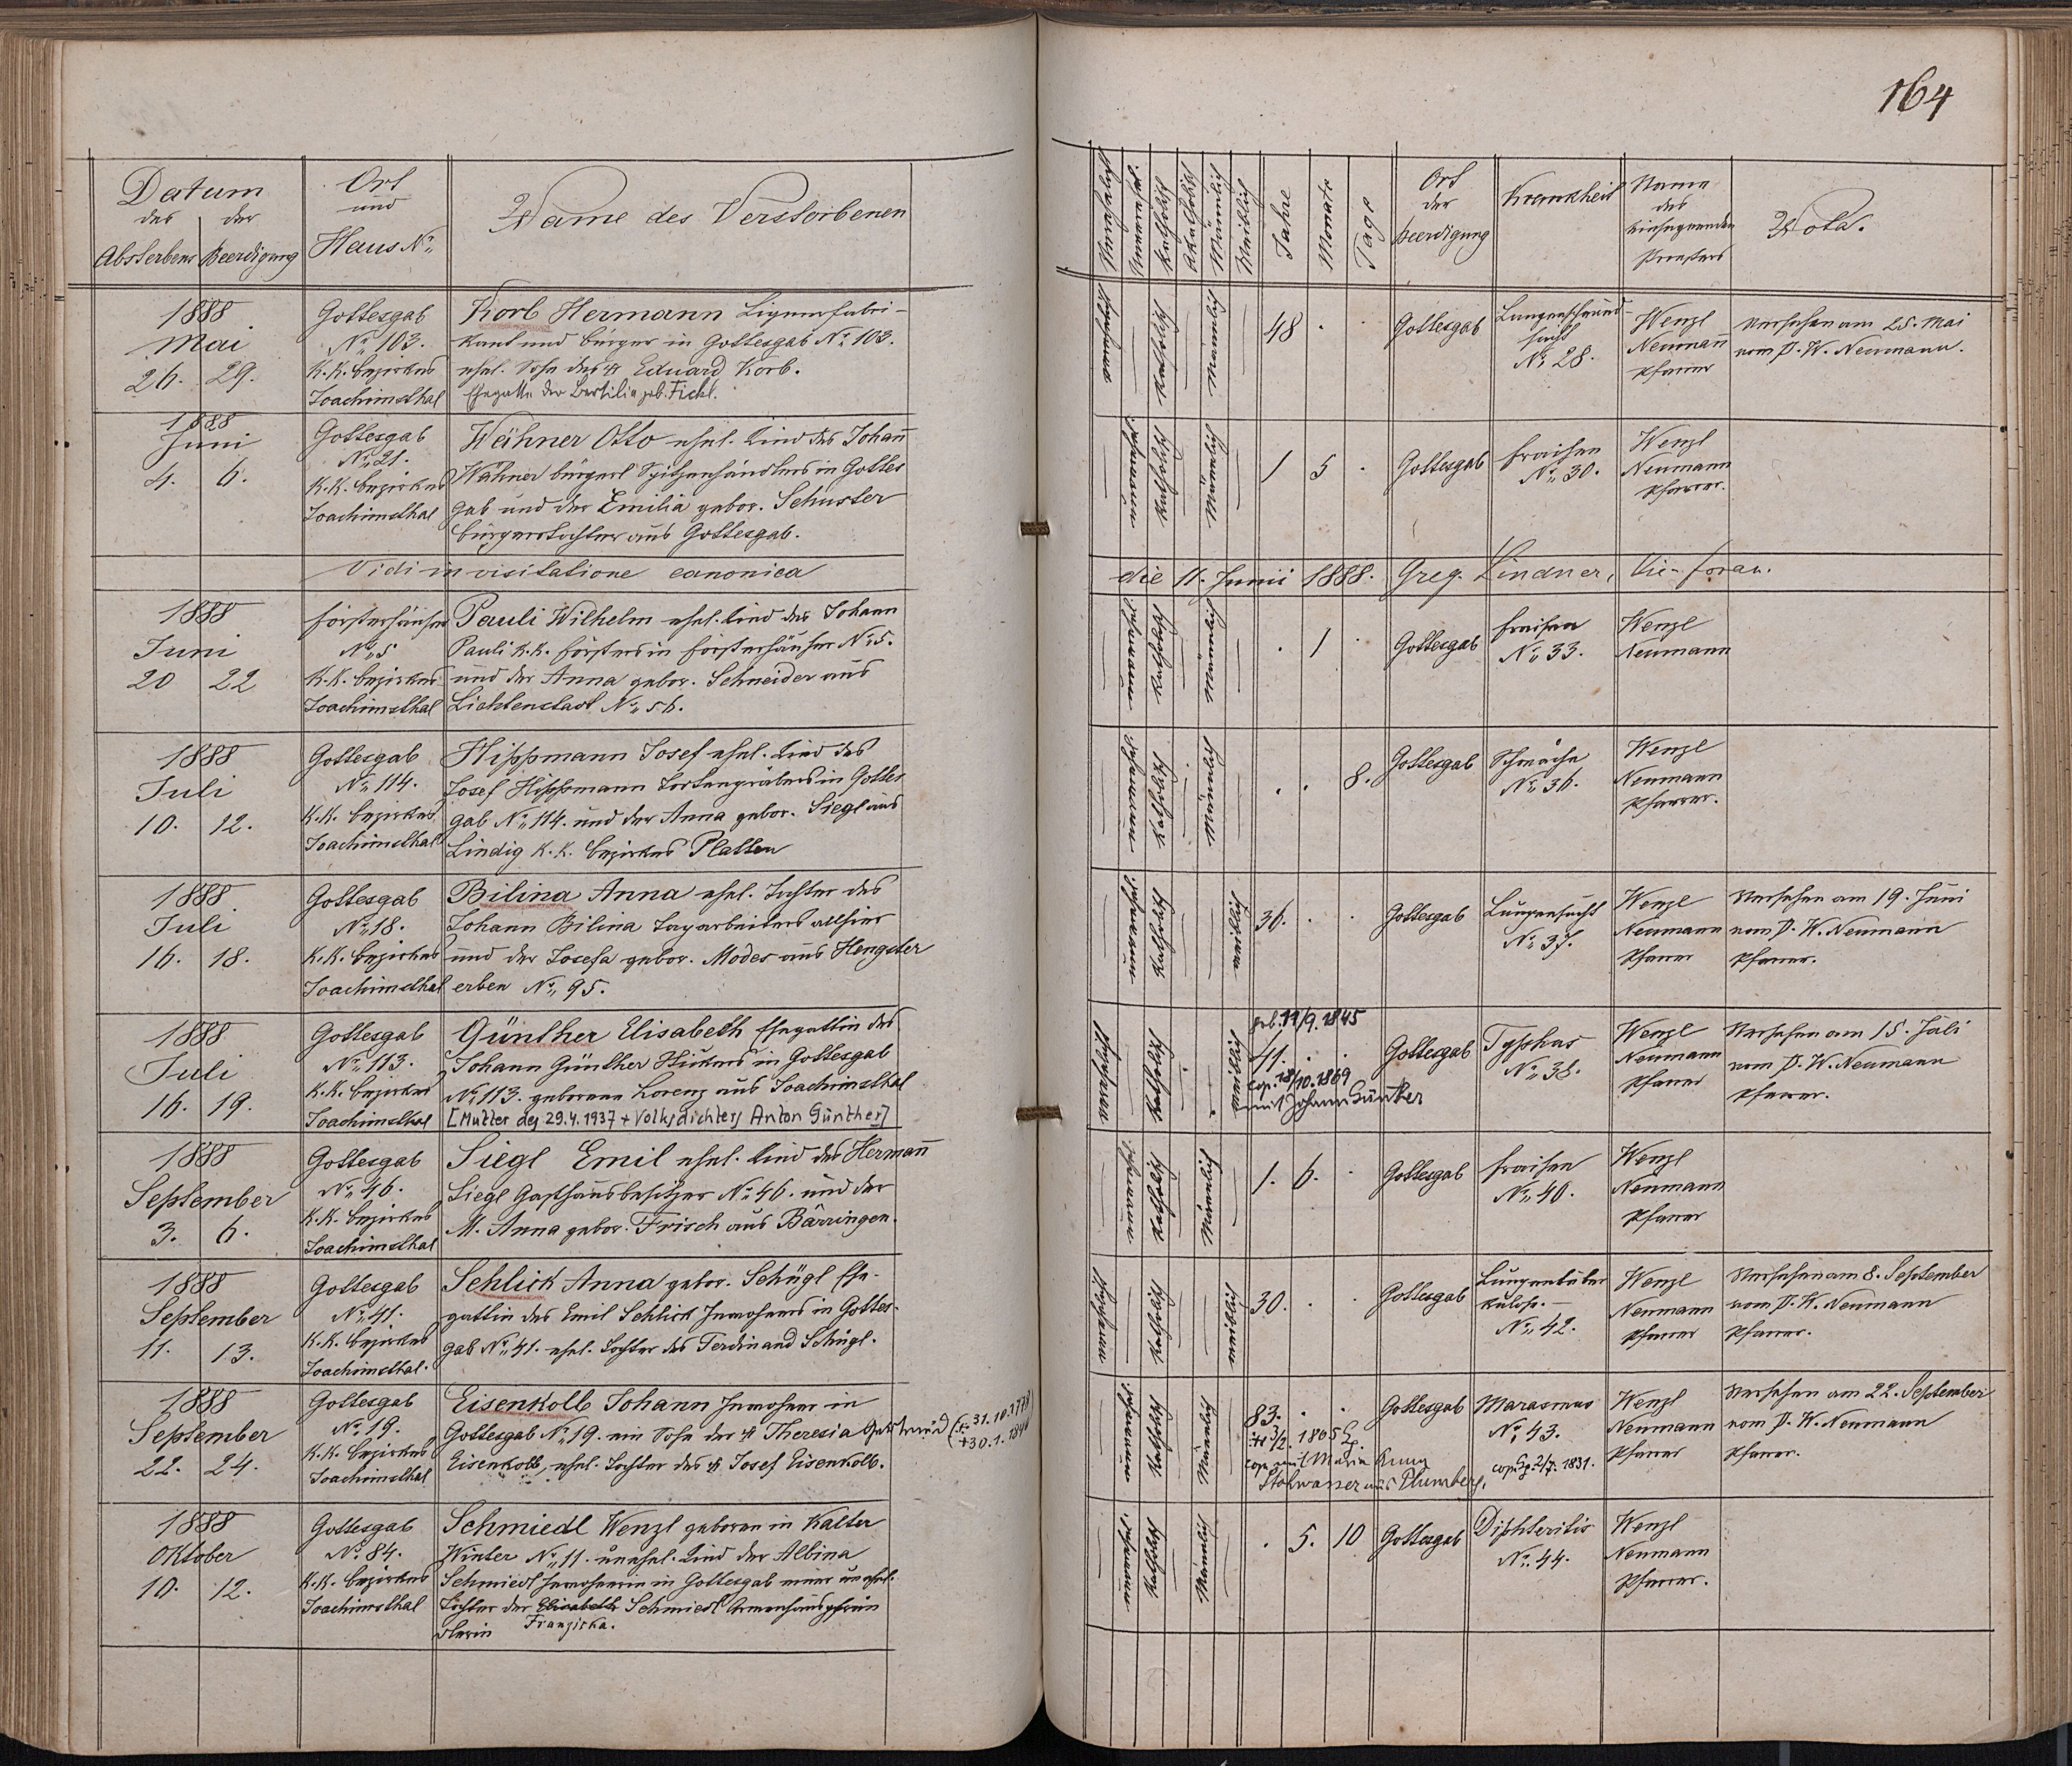 164
Datum
des der
Absterbens Beerdigung
Ort
und
Haus No.
Name des Verstorbenen
Verehelicht
Unverehel.
Katholisch
Akatholisch
Männlich
Weiblich
Jahre
Monate
Tage
Ort
der
Beerdigung
Krankheit
Name
des
einsegnenden
Priesters
Nota.
1888
Mai
26. 29.
Gottesgab
No. 103.
K.K. Bezirkes
Joachimsthal
Korb Hermann Liqueurfabri-
kant und Bürger in Gottesgab No. 103.
ehel. Sohn des + Eduard Korb.
Ehegatte der Bertilia geb. Fickl.
Katholisch
Männlich
48 . .
Gottesgab
Lungenschwind-
sucht
No. 28.
Wenzl
Neumann
Pfarrer
Versehen am 25. Mai
vom P. W. Neumann.
1888
Juni
4. 6.
Gottesgab
No. 21.
K.K. Bezirkes
Joachimsthal
Wähner Otto ehel. Kind des Johann
Wähner bürgerl. Spitzenhändlers in Gottes
gab und der Emilia gebor. Schuster
Bürgerstochter aus Gottesgab.
Katholisch
Männlich
1 5 .
Gottesgab
Fraisen
No. 30.
Wenzl
Neumann
Pfarrer.
Vidi in visitatione canonica die 11. Junii 1888. Greg. Lindner, Vic. foran.
1888
Juni
20 22
Försterhäuser
No. 5
K.K. Bezirkes
Joachimsthal
Pauli Wilhelm ehel. Kind des Johann
Pauli K.K. Försters in Försterhäuser No. 5.
und der Anna gebor. Schneider aus
Lichtenstadt No. 56.
Katholisch
Männlich
. 1 .
Gottesgab
Fraisen
No. 33.
Wenzl
Neumann
1888
Juli
10. 12.
Gottesgab
No. 114.
K.K. Bezirkes
Joachimsthal
Hippmann Josef ehel. Kind des
Josef Hippmann Tortengräbers in Gottes
gab No. 114. und der Anna gebor. Siegl aus
Lindig K.K. Bezirkes Platten
Katholisch
Männlich
. . 8.
Gottesgab
Schwäche
No. 36.
Wenzl
Neumann
Pfarrer.
1888
Juli
16. 18.
Gottesgab
No. 18.
K.K. Bezirkes
Joachimsthal
Bilina Anna ehel. Tochter des
Johann Bilina Tagarbeiters allhier
und der Josefa gebor. Modes aus Hengster
erben No. 95.
Katholisch
weiblich
36. . .
Gottesgab
Lungensucht
No. 37.
Wenzl
Neumann
Pfarrer
Versehen am 19. Juni
vom P. W. Neumann
Pfarrer.
1888
Juli
16. 19.
Gottesgab
No. 113.
K.K. Bezirkes
Joachimsthal
Günther Elisabeth Ehegattin des
Johann Günther Stickers in Gottesgab
No. 113. geborene Lorenz aus Joachimsthal
[Mutter des 29.4.1937 + Volksdichters Anton Günther]
Katholisch
weiblich
geb. 11/9. 1845
41. . .
cop. 18/10. 1869
mit Johann Günther
Gottesgab
Typhus
No. 38.
Wenzl
Neumann
Pfarrer
Versehen am 15. Juli
vom P. W. Neumann
Pfarrer.
1888
September
3. 6.
Gottesgab
No. 46.
K.K. Bezirkes
Joachimsthal
Siegl Emil ehel. Kind des Hermann
Siegl Gasthausbesitzer No. 46. und der
M. Anna gebor. Frisch aus Bärringen.
Katholisch
Männlich
1. 6. .
Gottesgab
Fraisen
No. 40.
Wenzl
Neumann
Pfarrer
1888
September
11. 13.
Gottesgab
No. 41.
K.K. Bezirkes
Joachimsthal.
Schlick Anna gebor. Schügl Ehe-
gattin des Emil Schlick Inwohners in Gottes-
gab No. 41. ehel. Tochter des Ferdinand Schügl.
Katholisch
weiblich
30. . .
Gottesgab
Lungentuber
kulose.
No. 42.
Wenzl
Neumann
Pfarrer
Versehen am 8. September
vom P. W. Neumann
Pfarrer.
1888
September
22. 24.
Gottesgab
No. 19.
K.K. Bezirkes
Joachimsthal
Eisenkolb Johann Inwohner in
Gottesgab No. 19. ein Sohn der + Theresia Gertraud (* 31.10.1778
+ 30.1.1844
Eisenkolb, ehel. Tochter des + Josef Eisenkolb.
Katholisch
Männlich
83. . .
cop. mit Maria Anna
Stohwasser aus Plumberg,
Gottesgab
Marasmus
No. 43.
cop. Gg. 2/7. 1831.
Wenzl
Neumann
Pfarrer
Versehen am 22. September
vom P. W. Neumann
Pfarrer.
1888
Oktober
10. 12.
Gottesgab
No. 84.
K.K. Bezirkes
Joachimsthal
Schmiedl Wenzl geboren in Kalter
Winter No. 11. unehel. Kind der Albina
Schmiedl Inwohnerin in Gottesgab einer unehel.
Tochter der Elisabeth Schmiedl Armenhauspfrün
dlerin Franziska.
Katholisch
Männlich
. 5. 10
Gottesgab
Diphteritis
No. 44.
Wenzl
Neumann
Pfarrer.